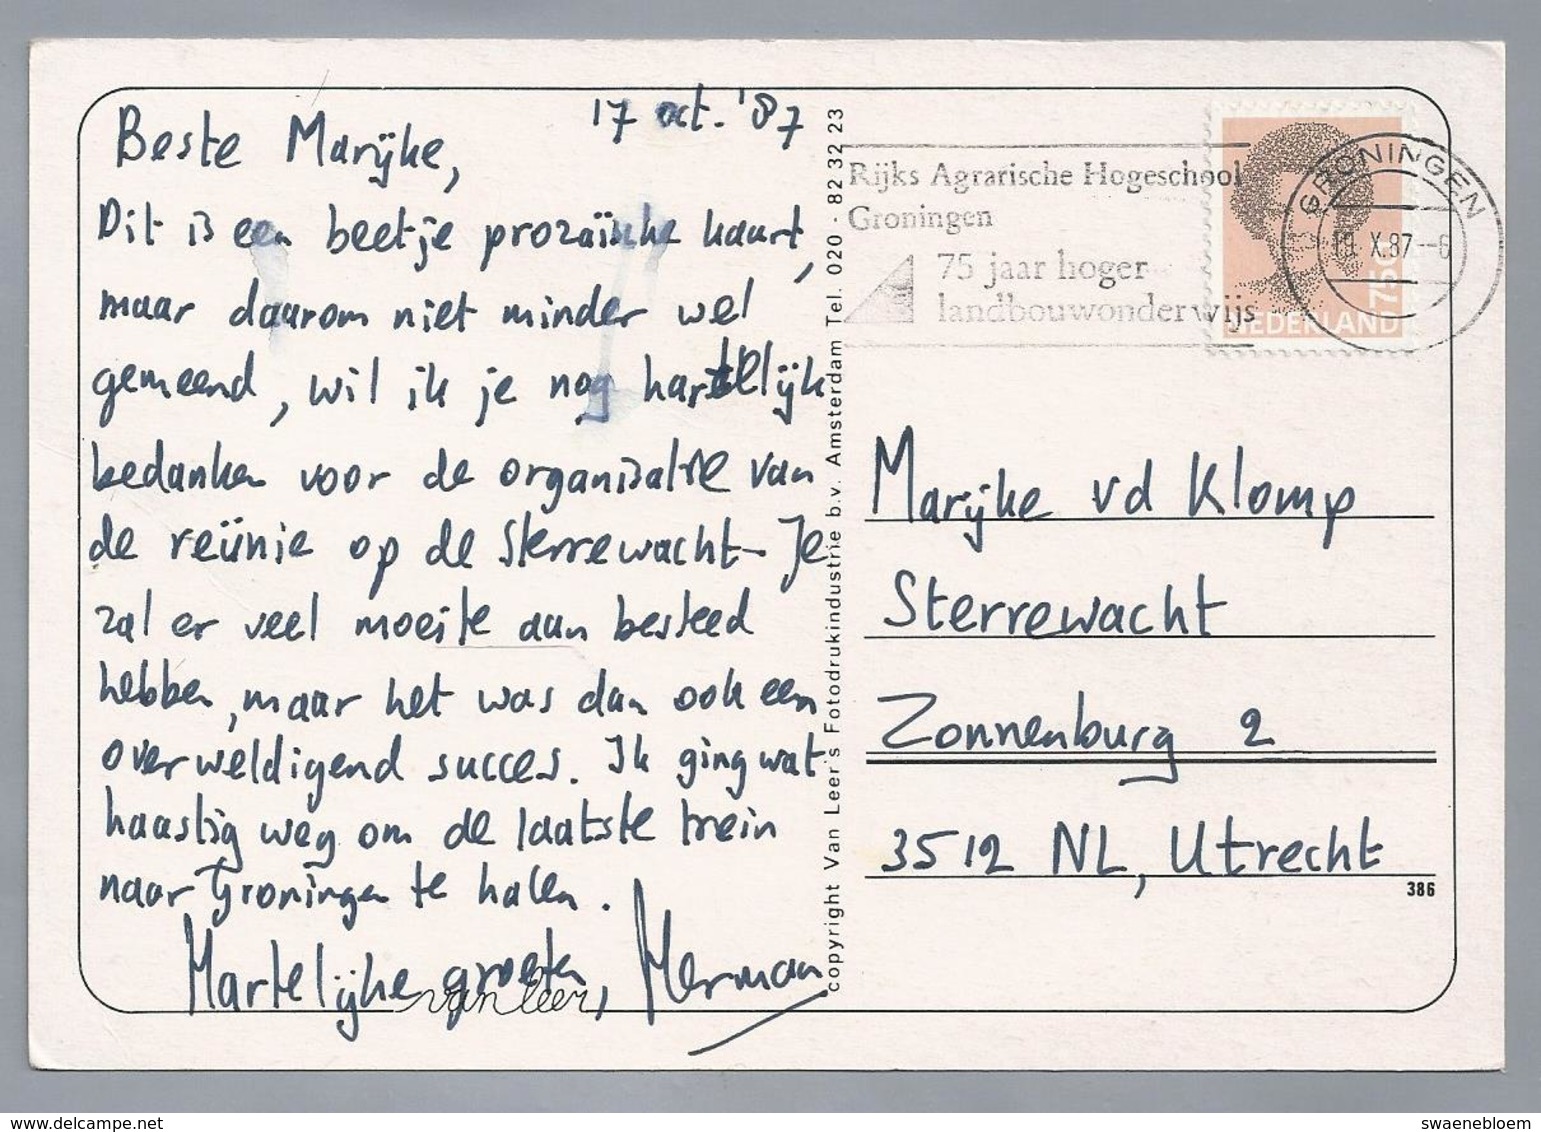 17 oct. '87
Beste Marijke,
Dit is een beetje prozaïsche kaart,
maar daarom niet minder wel
gemeend, wil ik je nog hartelijk
bedanken voor de organisatie van
de reünie op de Sterrewacht. Je
zal er veel moeite aan besteed
hebben, maar het was dan ook een
overweldigend succes. Ik ging wat
haastig weg om de laatste trein
naar Groningen te halen.
Hartelijke groeten, Herman
van leer
copyright Van Leer's Fotodrukindustrie b.v. Amsterdam Tel. 020 - 82 32 23
Rijks Agrarische Hogeschool
Groningen
75 jaar hoger
landbouwonderwijs
GRONINGEN
X.87-6
75c
NEDERLAND
Marijke vd Klomp
Sterrewacht
Zonnenburg 2
3512 NL, Utrecht
386
www.delcampe.net
swaenebloem